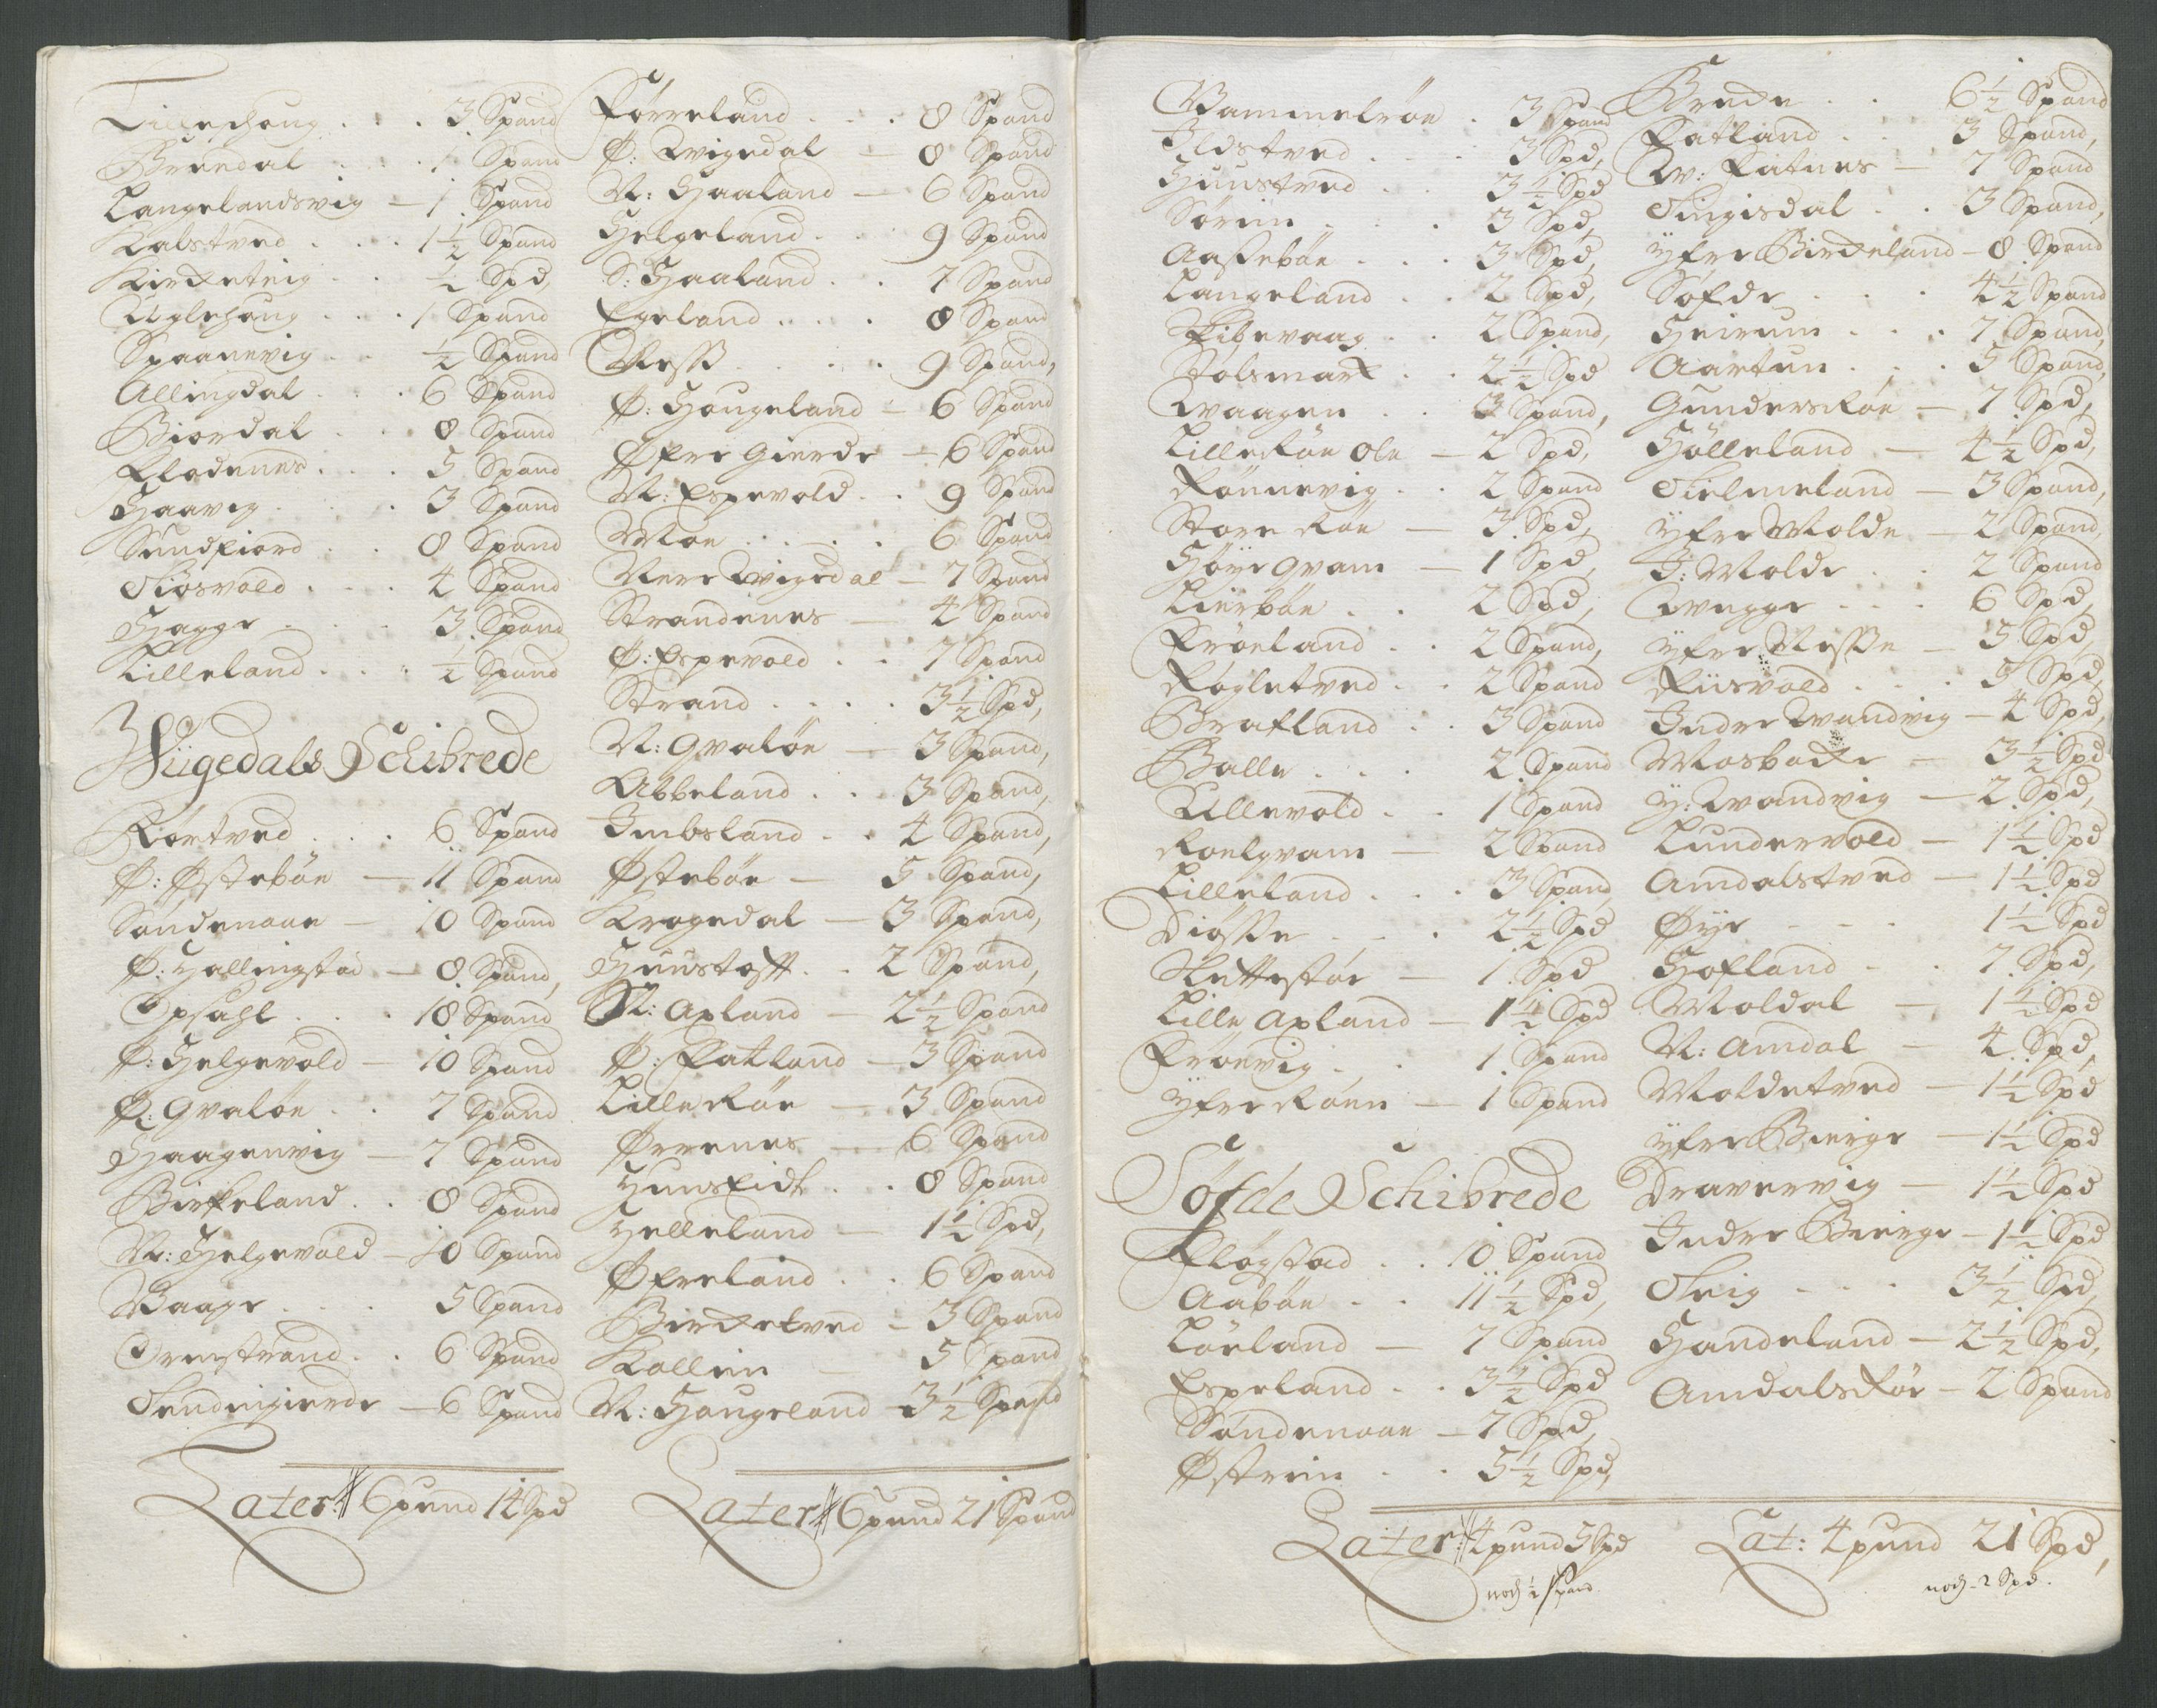 Lillehoug . . . 3 Spand
Bruedal . . . 1 Spand
Langelandsvig — 1 Spand
Kalstved . . . 1 1/2 Spand
Kirketeig . . 1/2 Spd,
Uglehoug . . . 1 Spand
Spaanevig . . 1/2 Spand
Allingdal . . . 6 Spand
Biordal . . 8 Spand
Flodenes . . . 5 Spand
Haavig . . . 3 Spand
Sundfiord . . 8 Spand
Tiøsvold . . . 4 Spand
Hagge . . . 3 Spand
Lilleland . . . 1/2 Spand
Wiigedals Schibrede
Rørtved . . . 6 Spand
Ø: Østebøe — 11 Spand
Sandenaae — 10 Spand
Ø: Hallingstad — 8 Spand,
Opsahl . . . 18 Spand
Ø: Helgevold — 10 Spand
Ø: Qvaløe . . 7 Spand
Haagenvig — 7 Spand
Birkeland . . 8 Spand
N: Helgevold — 10 Spand
Waage . . . 5 Spand
Ormstrand . . 6 Spand
Tendengierde — 6 Spand
Later 6 pund 14 Spd
Førreland . . . 8 Spand
Ø: Wigedal — 8 Spand
N: Haaland — 6 Spand
Helgeland . . 9 Spand
S: Haaland . . 7 Spand
Egeland . . . . 8 Spand
Ness . . . . 9 Spand,
Ø: Hougeland — 6 Spand
Øfre Gierde — 6 Spand
N: Espevold . . 9 Spand
Moe . . . . 6 Spand
Nere Wigedal — 7 Spand
Strandenes — 4 Spand
Ø: Espevold . . 7 Spand
Strand . . . . 3 1/2 Spd,
N: Qvaløe — 3 Spand,
Abbeland . . 3 Spand,
Imbsland . . 4 Spand,
Østebøe — 5 Spand,
Krogedal — 3 Spand,
Hunstoft . . 2 Spand,
N: Axland — 2 1/2 Spand
Ø: Fatland — 3 Spand
Lille Røe — 3 Spand
Ørrenes — 6 Spand
Hunsfidt . . 8 Spand
Helleland — 1 1/2 Spd,
Øfreland . . 6 Spand
Birketved — 3 Spand
Kallein — 5 Spand
N: Hougeland — 3 1/2 Spand
Later 6 pund 21 Spand
Wammelrøe . 3 Spand
Ilstved . . . 3 Spd,
Hunstved . . 3 1/2 Spd
Sørein . . . 3 Spd,
Aassebøe . . . 3 Spd,
Langeland . . 2 Spd,
Pibevaag . . 2 Spand,
Stolsmark . . 2 1/2 Spd
Waagen . . 3 Spand,
Lille Røe Ole — 2 Spd,
Rønnevig . . 2 Spand
Store Røe — 3 Spd,
Høye Qvam — 1 Spd,
Lierbøe . . 2 Spd,
Frøeland . . 2 Spand,
Røgletved . . 2 Spand
Bratland . . 3 Spand
Balle . . . 2 Spand
Ullevold . . 1 Spand
Roelqvam — 2 Spand
Lilleland . . . 3 Spand,
Diøsse . . . 2 1/2 Spd
Slettestøe — 1 Spd
Lille Axland — 1 1/2 Spd
Frøevig . . 1 Spand
Yfre Røen — 1 Spand
Søfde Schibrede
Fløgstad . . 10 Spand
Aabøe . . 11 1/2 Spd,
Løeland — 7 Spand
Espeland . . 3 1/2 Spd
Sandenaae — 7 Spd,
Østrein . . 5 1/2 Spd,
Later 4 pund 5 Spd
noch 1/2 Spand.
Brecke . . 6 1/2 Spand
Fatland . . 3 Spand,
W: Fatnes — 7 Spand
Tingisdal . . 3 Spand,
Yfre Birkeland — 8 Spand
Søfde . . . 4 1/2 Spand
Heirum . . . 7 Spand,
Aartun . . . 5 Spand,
Gunders Røe — 7 Spd,
Hølleland — 4 1/2 Spd,
Tielmeland — 3 Spand,
Yfre Molde — 2 Spand,
I: Molde . . 2 Spand
Wegge . . . 6 Spd,
Yfre Nesse — 5 Spd,
Riisvold . . . 5 Spd,
Indre Wandvig — 4 Spd,
Mosbacke — 3 1/2 Spd
Y: Wandvig — 2 Spd,
Lundervold — 1 1/2 Spd
Amdalstved — 1 1/2 Spd
Øye . . . 1 1/2 Spd
Hofland . . 7 Spd,
Moldal — 1 1/2 Spd
N: Amdal — 4 Spd,
Moldetved — 1 1/2 Spd
Yfre Bierge — 1 1/2 Spd
Dravervig — 1 1/2 Spd
Indre Bierge — 1 1/2 Spd
Teig . . . 3 1/2 Spd,
Handeland — 2 1/2 Spd,
Amdals Røe — 2 Spand
Lat: 4 pund 21 Spd,
noch - 2 Spd.